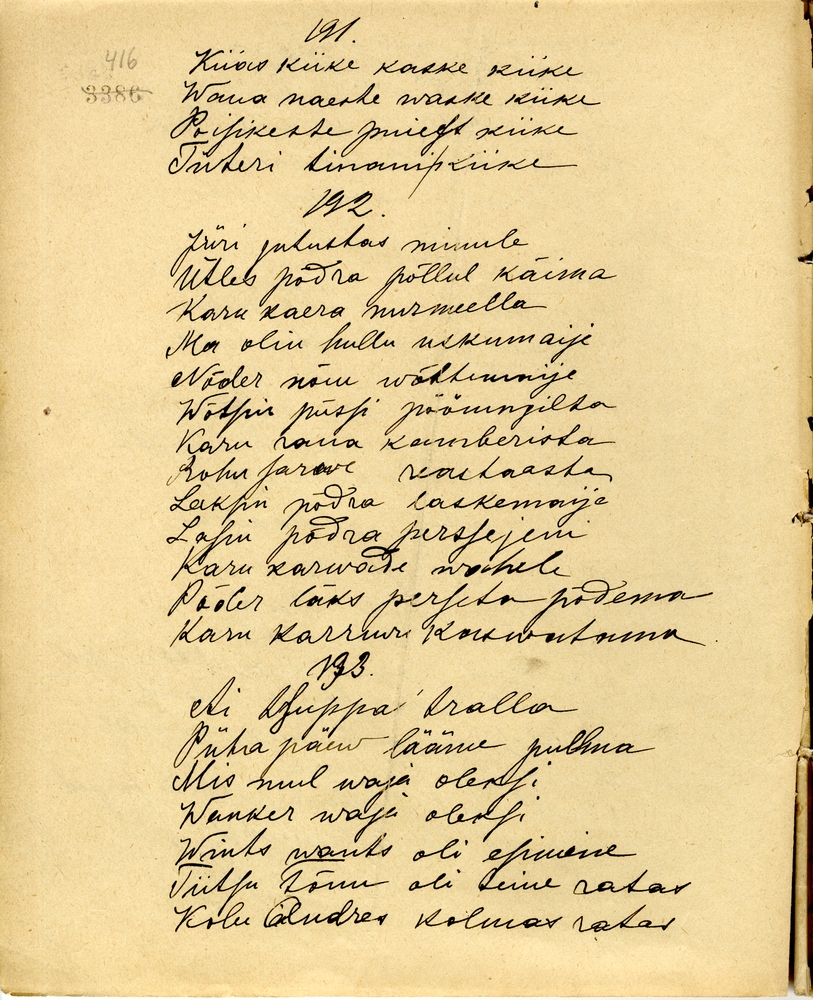 191.
416
3386
Kiias kiike kaske kiike
Wana naeste waske kiike
Poisikeste puiest kiike
Tüteri tinani kiike
192.
Jüri jutustas minule
Ütles põdra põllul käima
Karu kaera nurmeella
Ma olin hullu uskumaije
Nõder nõuu wõttemaije
Wõtsin püssi
Karu raua kamberista
Rohu sarwe reastaasta
Laksin põdra laskemaije
Lasin põdra perssejeni
Karu karwade wahele
Põder läks perseta põdema
Karu karruwi kaswatama
193.
Ai tsuppa tralla
Püha päew lääme pulma
Mis mul waja oleksi
Wanker waja oleksi
Wints wants oli esimene
Tiitsu Tõnu oli teine ratas
Kolu Andres kolmas ratas